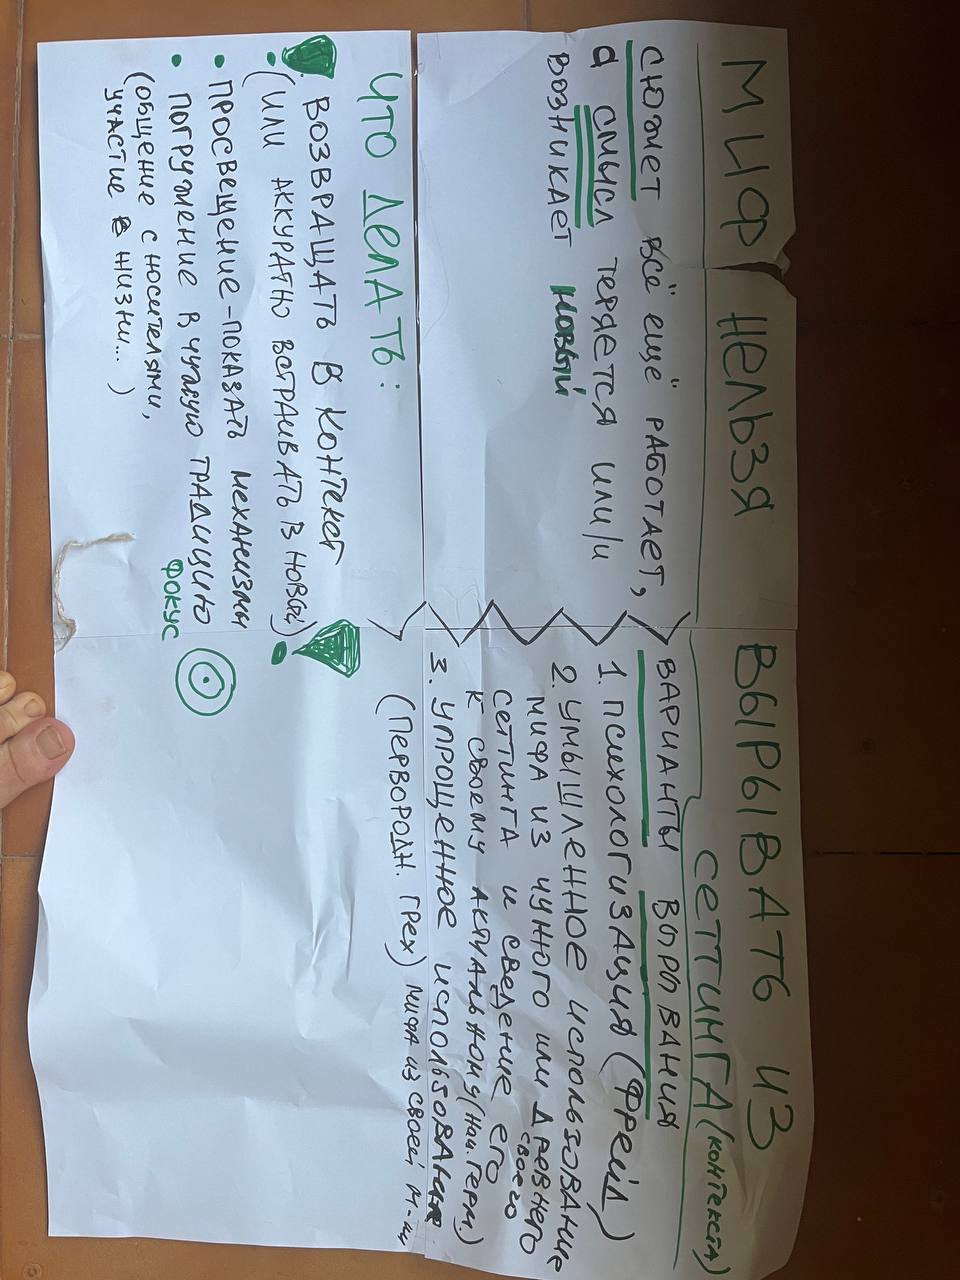 МИФ НЕЛЬЗЯ ВЫРЫВАТЬ ИЗ
СЕТТИНГА (КОНТЕКСТА)
СЮЖЕТ ВСЁ ЕЩЁ РАБОТАЕТ,
а СМЫСЛ ТЕРЯЕТСЯ ИЛИ/И
ВОЗНИКАЕТ НОВЫЙ
ВАРИАНТЫ ВЫРЫВАНИЯ
1. ПСИХОЛОГИЗАЦИЯ (ФРЕЙД)
2. УМЫШЛЕННОЕ ИСПОЛЬЗОВАНИЕ
МИФА ИЗ ЧУЖОГО ИЛИ ДРЕВНЕГО
своего
СЕТТИНГА И СВЕДЕНИЕ ЕГО
К СВОЕМУ АКТУАЛЬНОМУ (Нац. Герм.)
3. УПРОЩЕННОЕ ИСПОЛЬЗОВАНИЕ
(ПЕРВОРОДН. ГРЕХ) МИФА ИЗ СВОЕЙ М-ии
ЧТО ДЕЛАТЬ:
ВОЗВРАЩАТЬ В КОНТЕКСТ
(ИЛИ АККУРАТНО ВСТРАИВАТЬ В НОВЫЙ)
• ПРОСВЕЩЕНИЕ - ПОКАЗАТЬ МЕХАНИЗМЫ
• ПОГРУЖЕНИЕ В ЧУЖУЮ ТРАДИЦИЮ
ФОКУС
(ОБЩЕНИЕ С НОСИТЕЛЯМИ,
УЧАСТИЕ В ЖИЗНИ... )